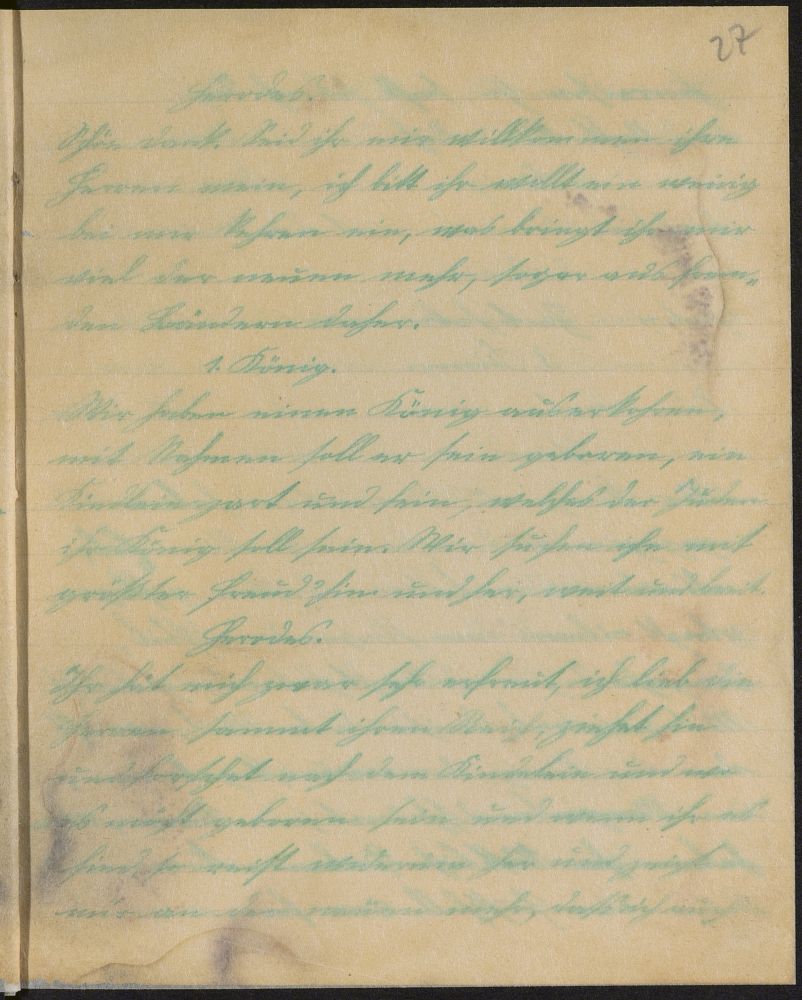 27
Herodes.
Schön dank. Seid ihr mir willkommen ihre
Herren mein, ich bitt ihr wollt ein wenig
bei mir kehren ein, was bringt ihr mir
viel der neuen mehr, sogar aus frem-
den Ländern daher.
1. König.
Wir haben einen König auserkohren,
mit Nahmen soll er sein geboren, ein
Kindlein zart und fein, welches der Juden
ihr König soll sein. Wir suchen ihn mit
größter Freud hin und her, weit und breit.
Herodes.
Ihr hät mich zwar sehr erfreut, ich lieb die
Herren sammt ihren, ziehet hin
und forschet nach dem Kindelein und wo
es möcht geboren sein und wenn ihr es
find, so reist wiederum her und zeigt
mir an der neuen mehr, daß ich auch